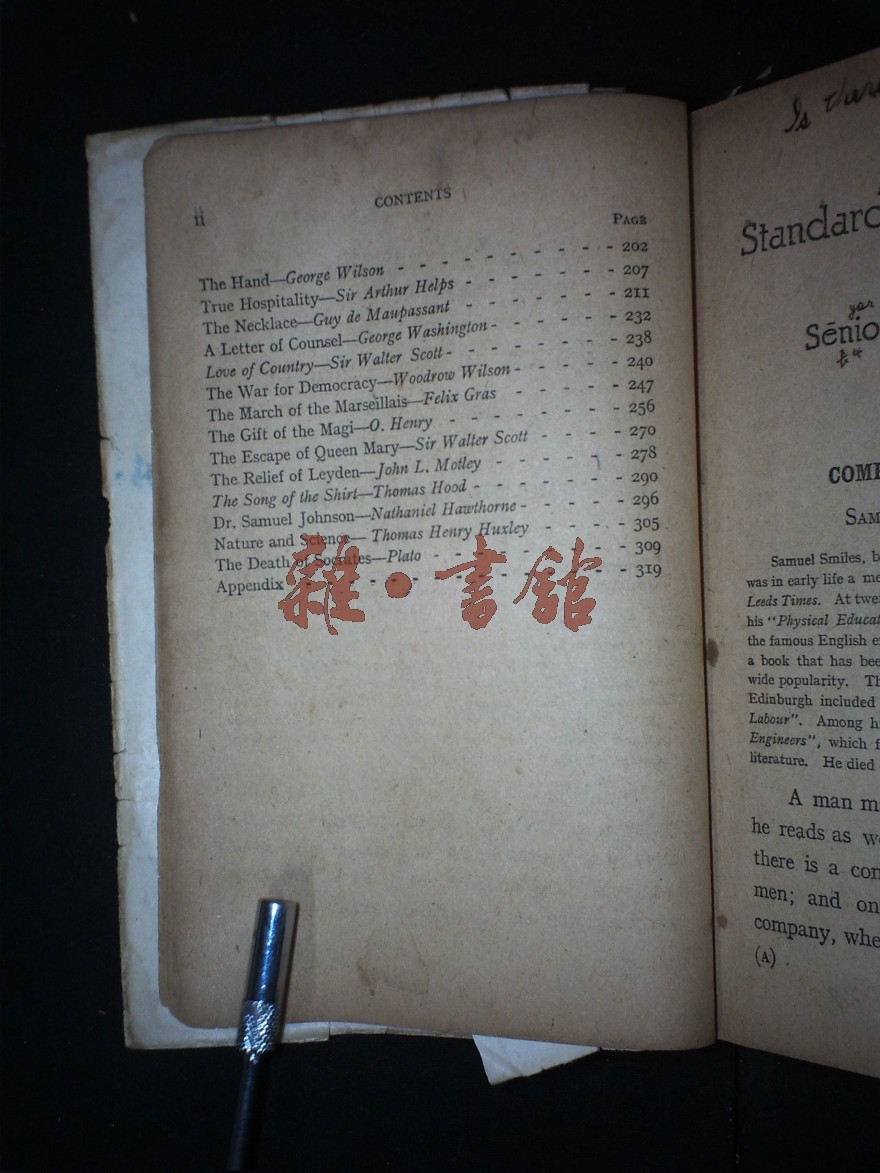 ii
CONTENTS
PAGE
The Hand—George Wilson - - - - - - - - - - 202
True Hospitality—Sir Arthur Helps - - - - - - - 207
The Necklace—Guy de Maupassant - - - - - - - 211
A Letter of Counsel—George Washington - - - - - - 232
Love of Country—Sir Walter Scott - - - - - - - - 238
The War for Democracy—Woodrow Wilson - - - - - 240
The March of the Marseillais—Felix Gras - - - - - 247
The Gift of the Magi—O. Henry - - - - - - - - 256
The Escape of Queen Mary—Sir Walter Scott - - - - 270
The Relief of Leyden—John L. Motley - - - - - - 278
The Song of the Shirt—Thomas Hood - - - - - - - 290
Dr. Samuel Johnson—Nathaniel Hawthorne - - - - - 296
Nature and Science—Thomas Henry Huxley - - - - 305
The Death of Socrates—Plato - - - - - - - - - 309
Appendix - - - - - - - - - - - - - 319
雜·書館
Is
Standard
Sēnio
COM
SAM
Samuel Smiles, b
was in early life a me
Leeds Times. At twe
his "Physical Educat
the famous English e
a book that has bee
wide popularity. Th
Edinburgh included
Labour". Among h
Engineers", which f
literature. He died
A man m
he reads as w
there is a con
men; and on
company, whe
(A)